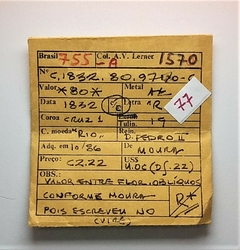 Brasil 755-A Col. A.V. Lerner 1570
Nº C.1832.80.97
Valor *80* Metal
Data 1832 Letra R
Coroa CRUZ 1 Tulio. 19
77
C. moeda RIO. Rein. D. PEDRO II
Adq. em 10/86 De MOURA
Preço: C2.22 US$
OBS.:
VALOR ENTRE FLOR. OBLÍQUOS
CONFORME MOURA
POIS ESCREVEU NO R*
(VIRE)